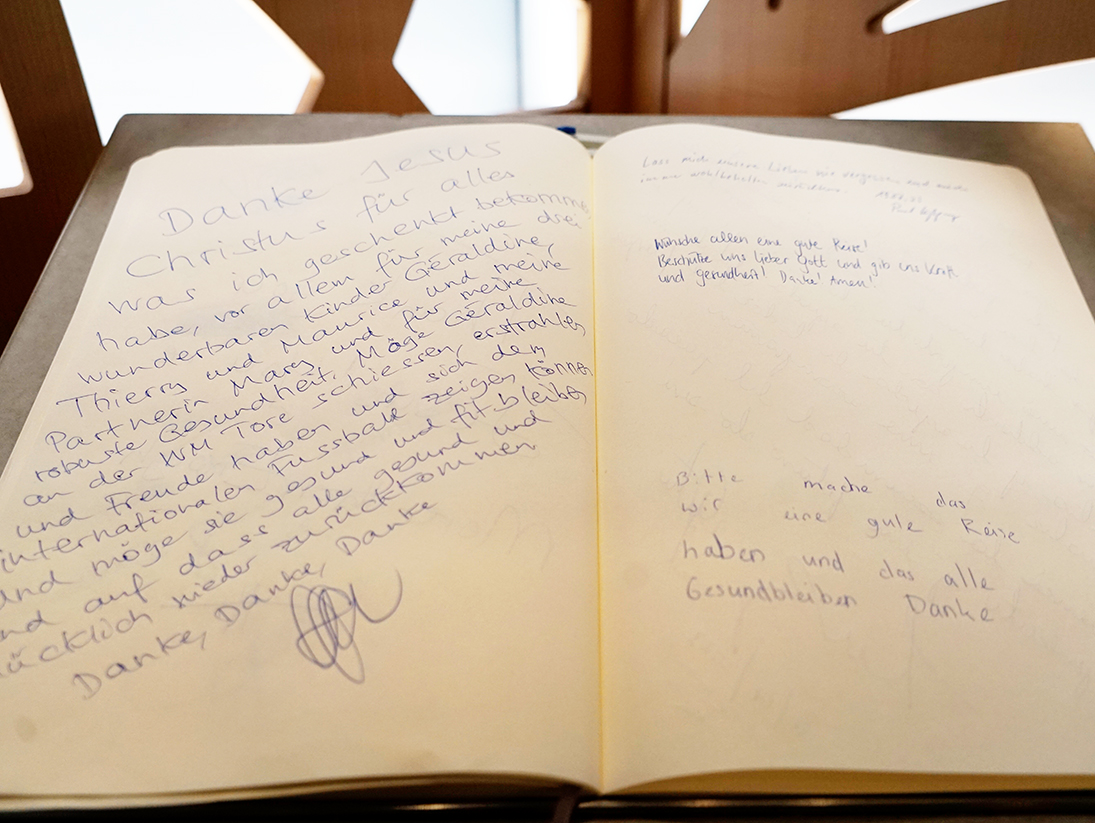 Danke Jesus
Christus für alles
was ich geschenkt bekommen
habe, vor allem für meine drei
wunderbaren Kinder Géraldine,
Thierry und Maurice und meine
Partnerin Mary und für meine
robuste Gesundheit. Möge Géraldine
an der WM Tore schiessen, erstrahlen
und Freude haben und sich dem
internationalen Fussball zeigen können
und möge sie gesund und fit bleiben
und auf dass alle gesund und
glücklich wieder zurückkommen
Danke, Danke, Danke
Lass mich unsere Lieben nie vergessen und
immer wohlbehalten
Wünsche allen eine gute Reise!
Beschütze uns lieber Gott und gib uns Kraft
und gesundheit! Danke! Amen!
Bitte mache das
wir eine gute Reise
haben und das alle
Gesundbleiben Danke